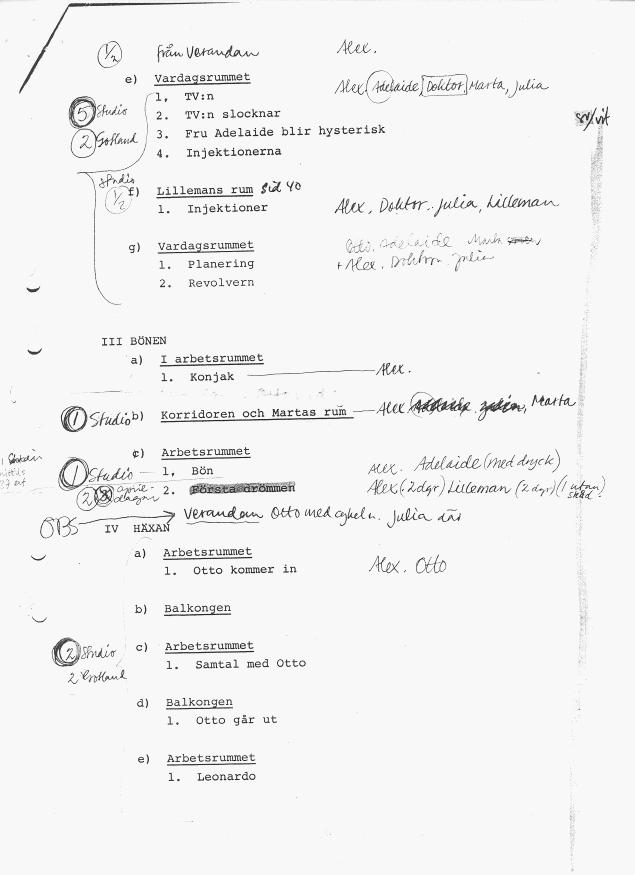 1/2 från Verandan Alex.
e) Vardagsrummet Alex. Adelaide, Doktor, Marta, Julia
5 Studio 1, TV:n
2. TV:n slocknar sv/vit
2 Gotland 3. Fru Adelaide blir hysterisk
4. Injektionerna
Studio
1/2 f) Lillemans rum sid 40
1. Injektioner Alex. Doktor. Julia, Lilleman
g) Vardagsrummet Otto. Adelaide Marta
1. Planering + Alex. Doktor. Julia
2. Revolvern
III BÖNEN
a) I arbetsrummet
1. Konjak Alex.
1 Studio b) Korridoren och Martas rum Alex Adelaide Julia, Marta
c) Arbetsrummet
1 Studio 1, Bön Alex. Adelaide (med dryck)
2 2. Första drömmen Alex (2 dgr) Lilleman (2 dgr) (1 utan
OBS Verandan Otto med cykeln. Julia där
IV HÄXAN
a) Arbetsrummet
1. Otto kommer in Alex. Otto
b) Balkongen
2 Studio c) Arbetsrummet
2 Gotland 1. Samtal med Otto
d) Balkongen
1. Otto går ut
e) Arbetsrummet
1. Leonardo